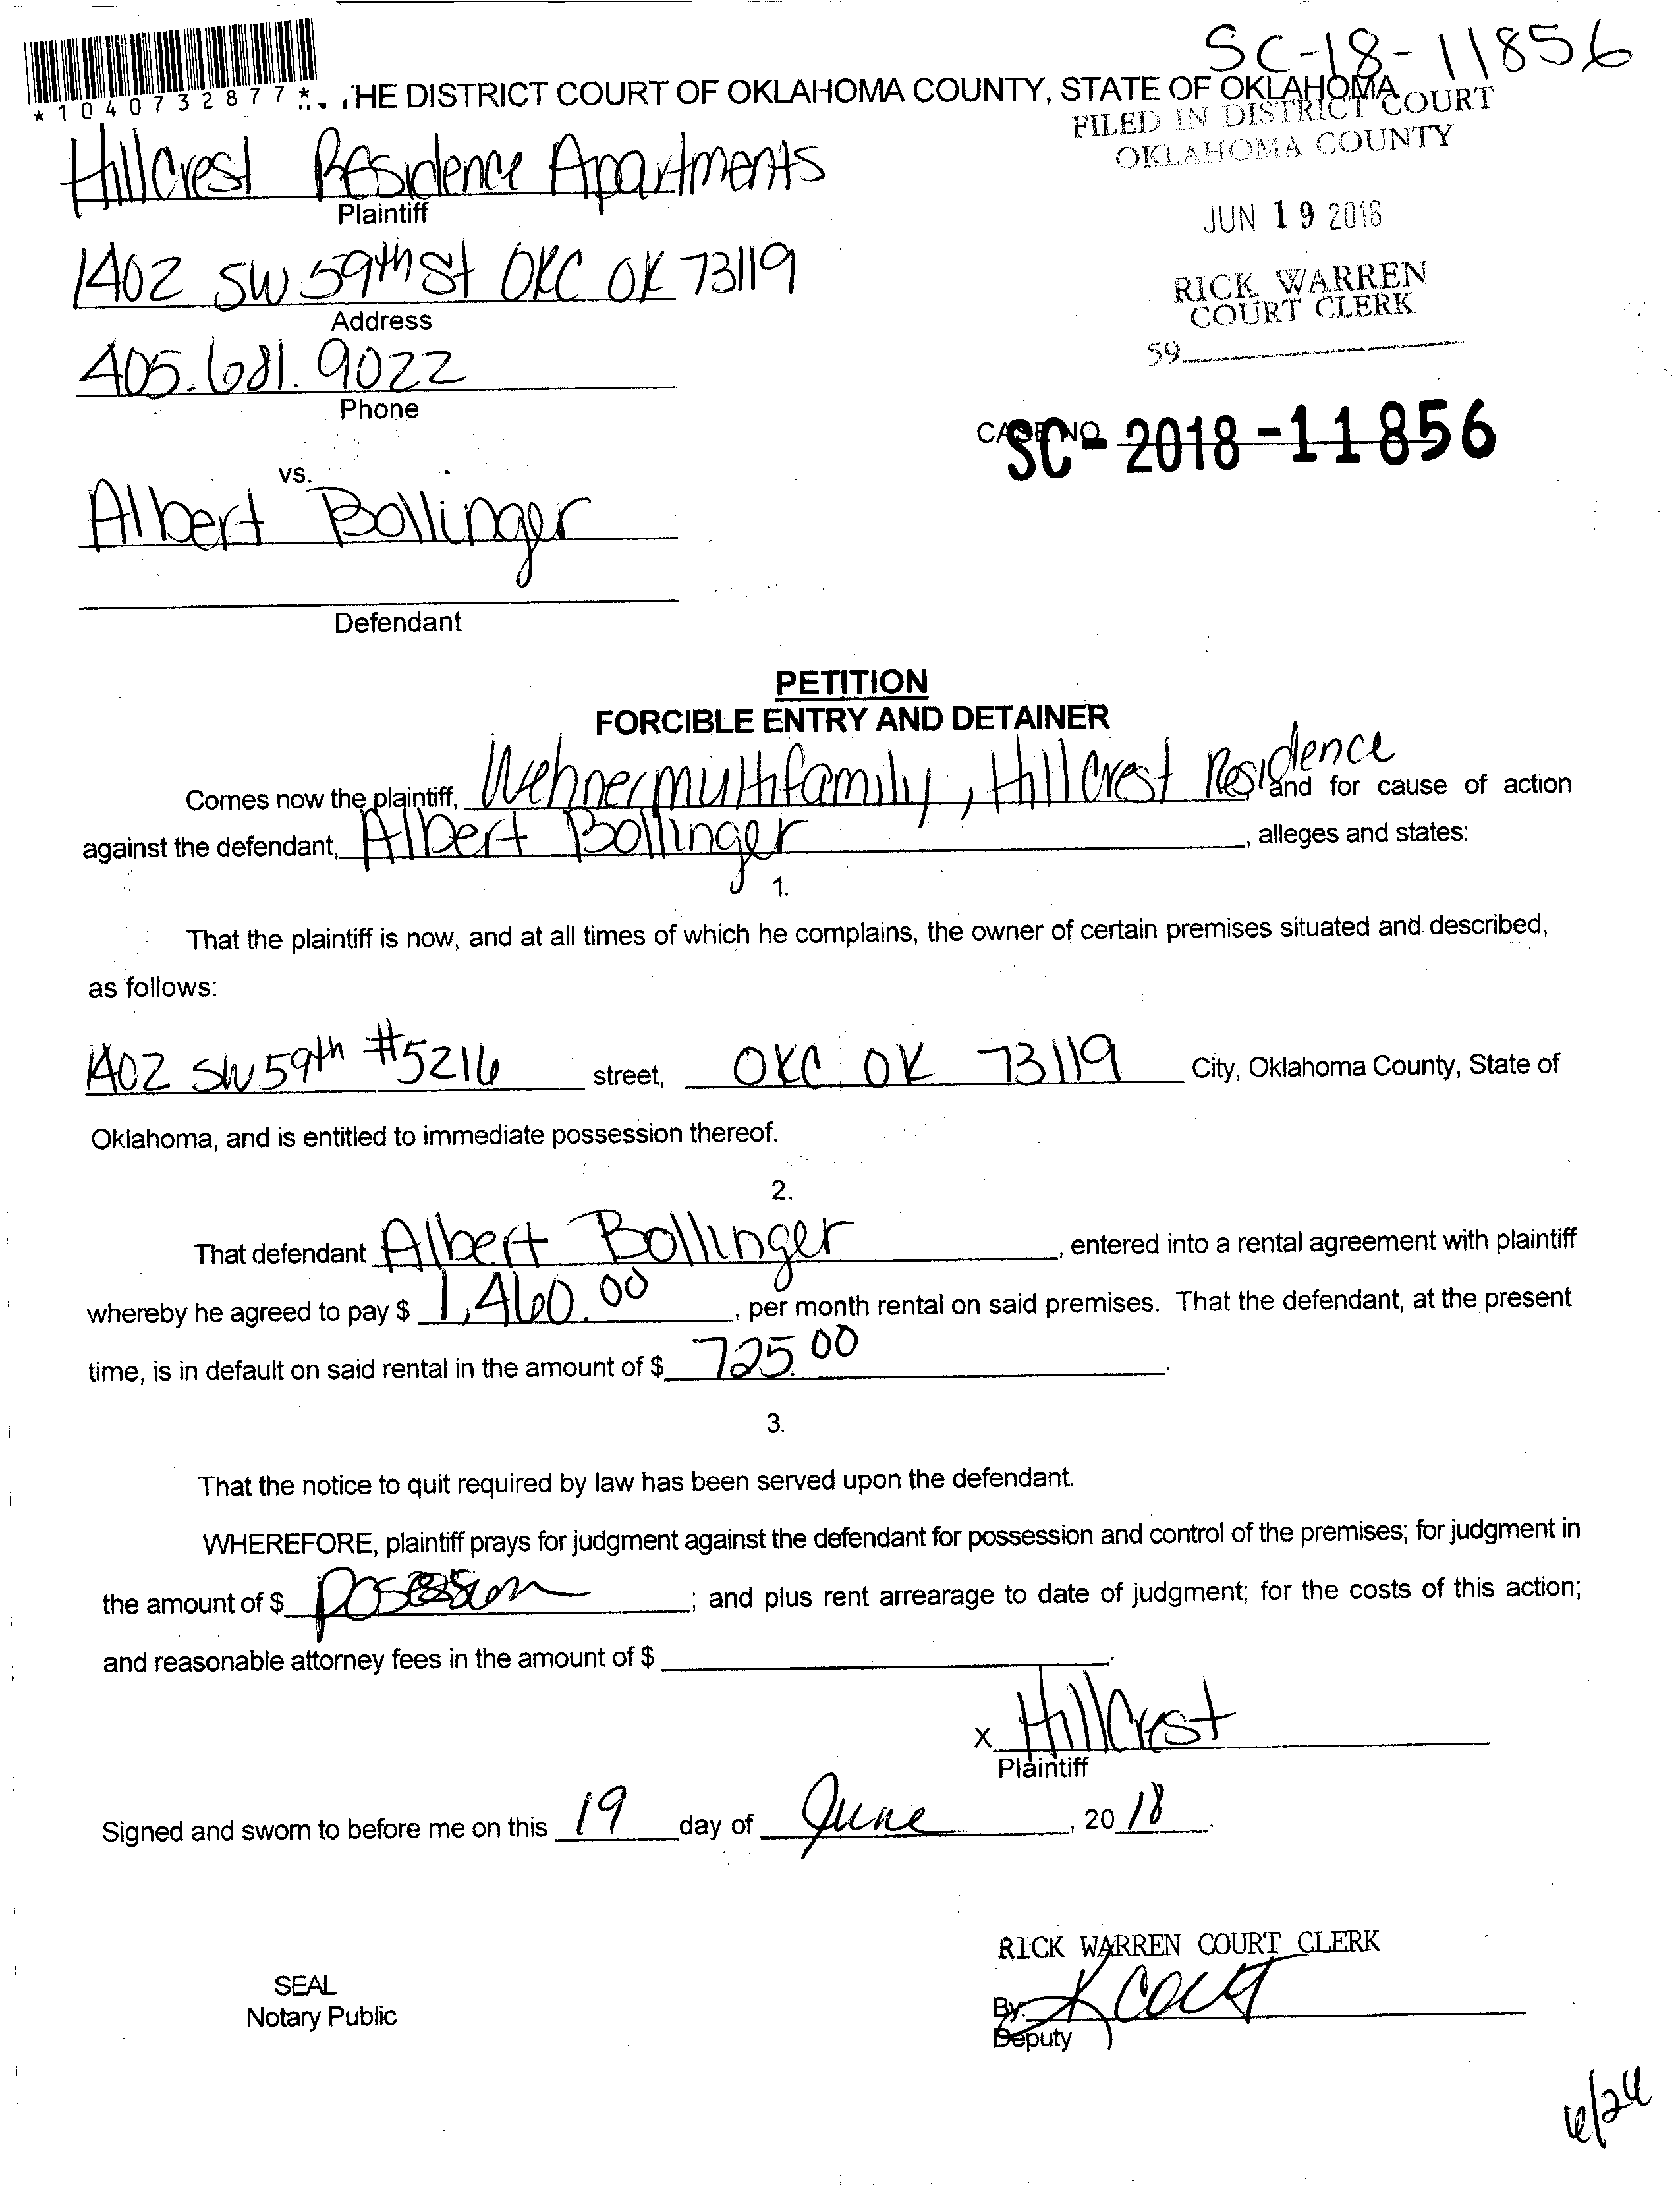 SC-18-11856
*1040732877*
HE DISTRICT COURT OF OKLAHOMA COUNTY, STATE OF OKLAHOMA
FILED IN DISTRICT COURT
OKLAHOMA COUNTY
Hillcrest Residence Apartments
Plaintiff
JUN 19 2018
1402 SW 59th St OKC OK 73119
Address
RICK WARREN
COURT CLERK
405.681.9022
Phone
59
CASE NO.
SC-2018-11856
vs.
Albert Bollinger
Defendant
PETITION
FORCIBLE ENTRY AND DETAINER
Comes now the plaintiff, Wehner multifamily, Hillcrest Residence and for cause of action
against the defendant, Albert Bollinger, alleges and states:
1.
That the plaintiff is now, and at all times of which he complains, the owner of certain premises situated and described,
as follows:
1402 SW 59th #5216 street, OKC OK 73119 City, Oklahoma County, State of
Oklahoma, and is entitled to immediate possession thereof.
2.
That defendant Albert Bollinger, entered into a rental agreement with plaintiff
whereby he agreed to pay $ 1,460.00, per month rental on said premises. That the defendant, at the present
time, is in default on said rental in the amount of $ 725.00.
3.
That the notice to quit required by law has been served upon the defendant.
WHEREFORE, plaintiff prays for judgment against the defendant for possession and control of the premises; for judgment in
the amount of $ ; and plus rent arrearage to date of judgment; for the costs of this action;
and reasonable attorney fees in the amount of $ .
X Hillcrest
Plaintiff
Signed and sworn to before me on this 19 day of June, 20 18.
RICK WARREN COURT CLERK
SEAL
Notary Public
By:
Deputy
6/26